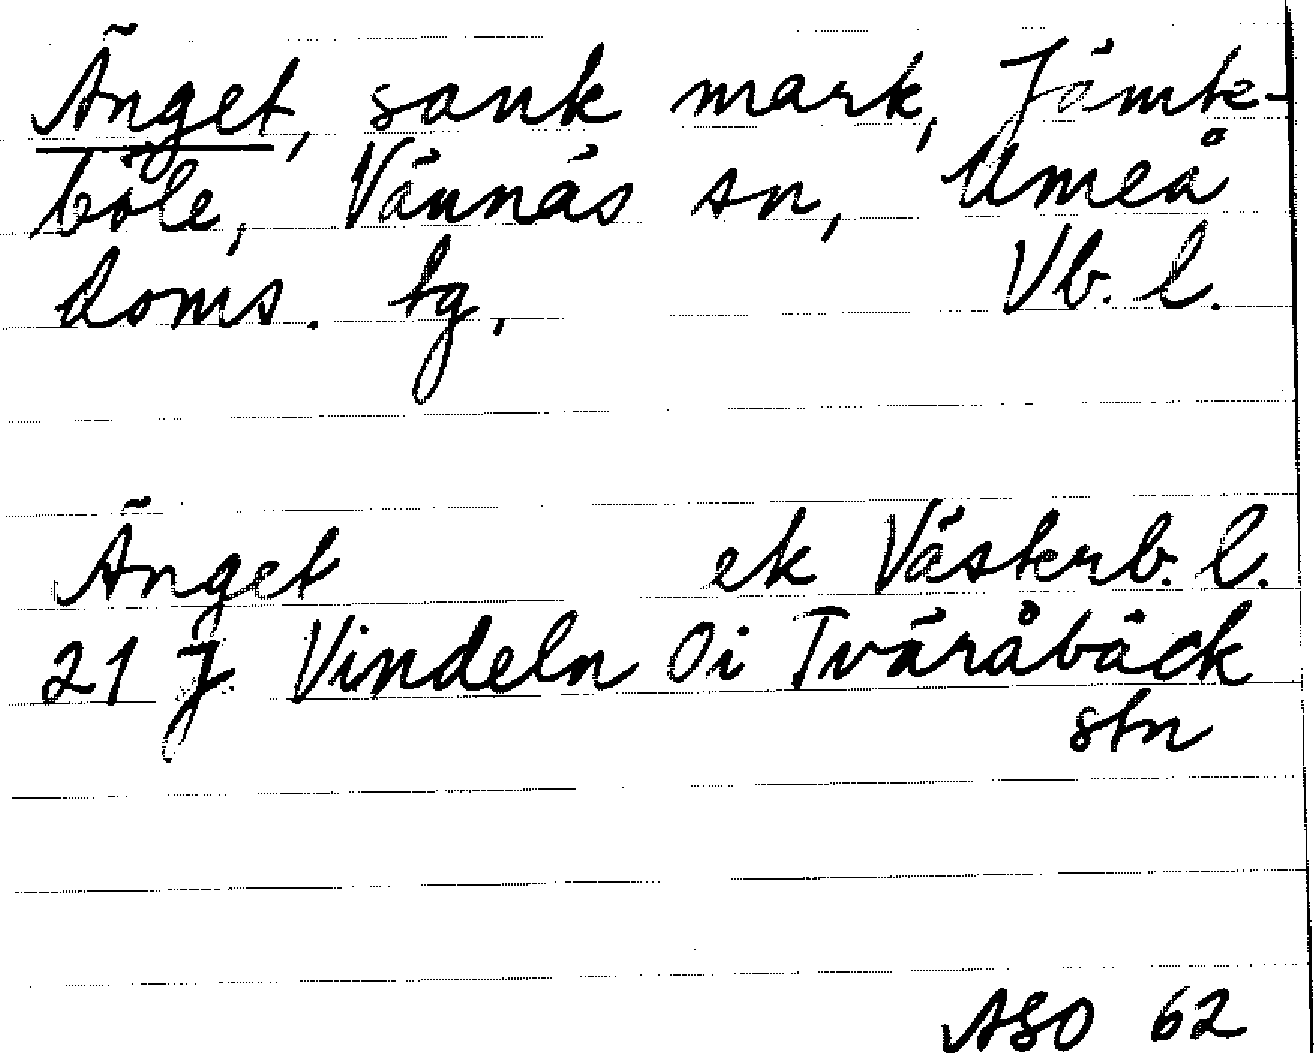 Änget, sank mark, Jämte-
böle, Vännäs sn, Umeå
doms. tg, Vb. l.
Änget ek Västerb. l.
21 J Vindeln Oi Tväråbäck
stn
ASO 62